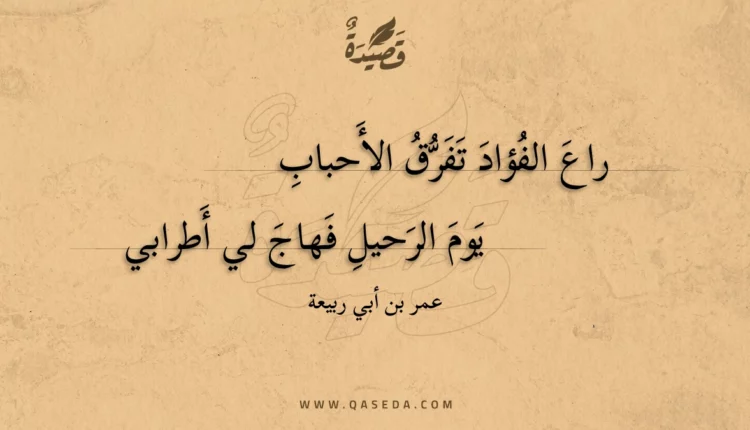 قَصِيْدَةٌ
راعَ الفُؤادَ تَفَرُّقُ الأَحبابِ
يَومَ الرَحيلِ فَهاجَ لي أَطرابي
عمر بن أبي ربيعة
WWW.QASEDA.COM